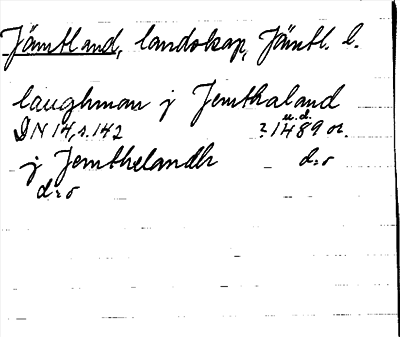 Jämtland, landskap, Jämtl. l.
laughman j Jemthaland
DN 14, s. 142 ? u.d. 1489 or.
j Jemthelandh d:o
d:o